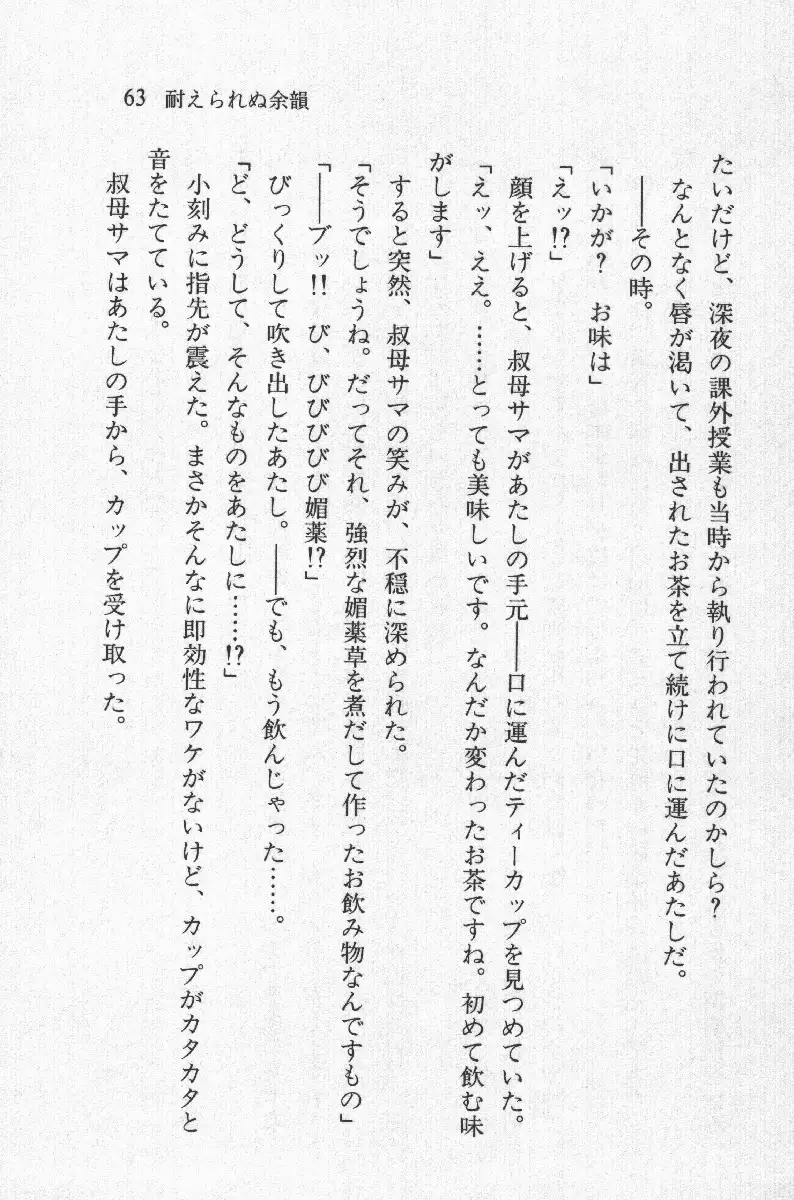 63 耐えられぬ余韻
たいだけど、深夜の課外授業も当時から執り行われていたのかしら？
なんとなく唇が渇いて、出されたお茶を立て続けに口に運んだあたしだ。
――その時。
「いかが？　お味は」
「えッ!?」
顔を上げると、叔母サマがあたしの手元――口に運んだティーカップを見つめていた。
「えッ、ええ。……とっても美味しいです。なんだか変わったお茶ですね。初めて飲む味
がします」
すると突然、叔母サマの笑みが、不穏に深められた。
「そうでしょうね。だってそれ、強烈な媚薬草を煮だして作ったお飲み物なんですもの」
「――ブッ!!　び、びびびびび媚薬!?」
びっくりして吹き出したあたし。――でも、もう飲んじゃった……。
「ど、どうして、そんなものをあたしに……!?」
小刻みに指先が震えた。まさかそんなに即効性なワケがないけど、カップがカタカタと
音をたてている。
叔母サマはあたしの手から、カップを受け取った。